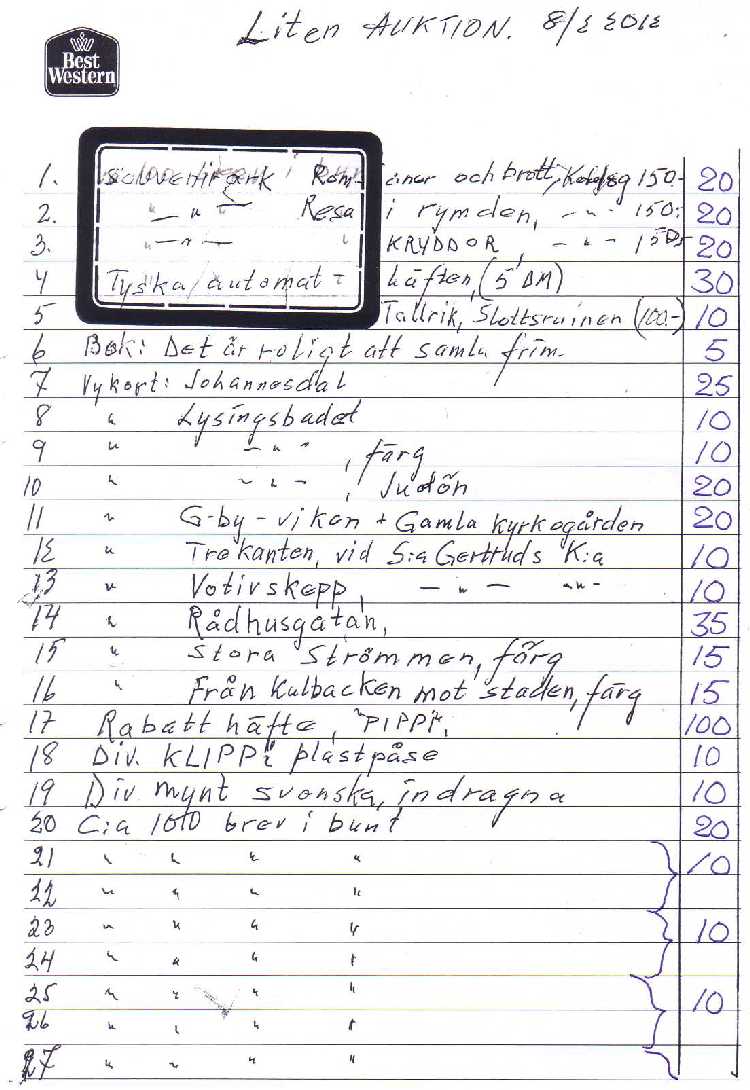 Liten AUKTION. 8/2 2012
Best
Western
1. Souvenirark Rom- anor och brott, 150:- 20
2. — " — Resa i rymden, - " - 150:- 20
3. — " — " KRYDDOR, - " - 150:- 20
4 Tyska automat- häften, (5 DM) 30
5 Tallrik, Slottsruinen (100:-) 10
6 Bok: Det är roligt att samla frim. 5
7 Vykort: Johannesdal 25
8 " Lysingsbadet 10
9 " - " - , färg 10
10 " - " - , Judön 20
11 " G-by-viken + Gamla kyrkogården 20
12 " Trekanten, vid S:a Gertruds K:a 10
13 " Votivskepp, — " — - " - 10
14 " Rådhusgatan, 35
15 " Stora Strömmen, färg 15
16 " Från Kulbacken mot staden, färg 15
17 Rabatthäfte, "PIPPI", 100
18 Div. KLIPP i plastpåse 10
19 Div mynt svenska, indragna 10
20 C:a brev i bunt 20
21 " " " " 10
22 " " " "
23 " " " " 10
24 " " " "
25 " " " " 10
26 " " " "
27 " " " "